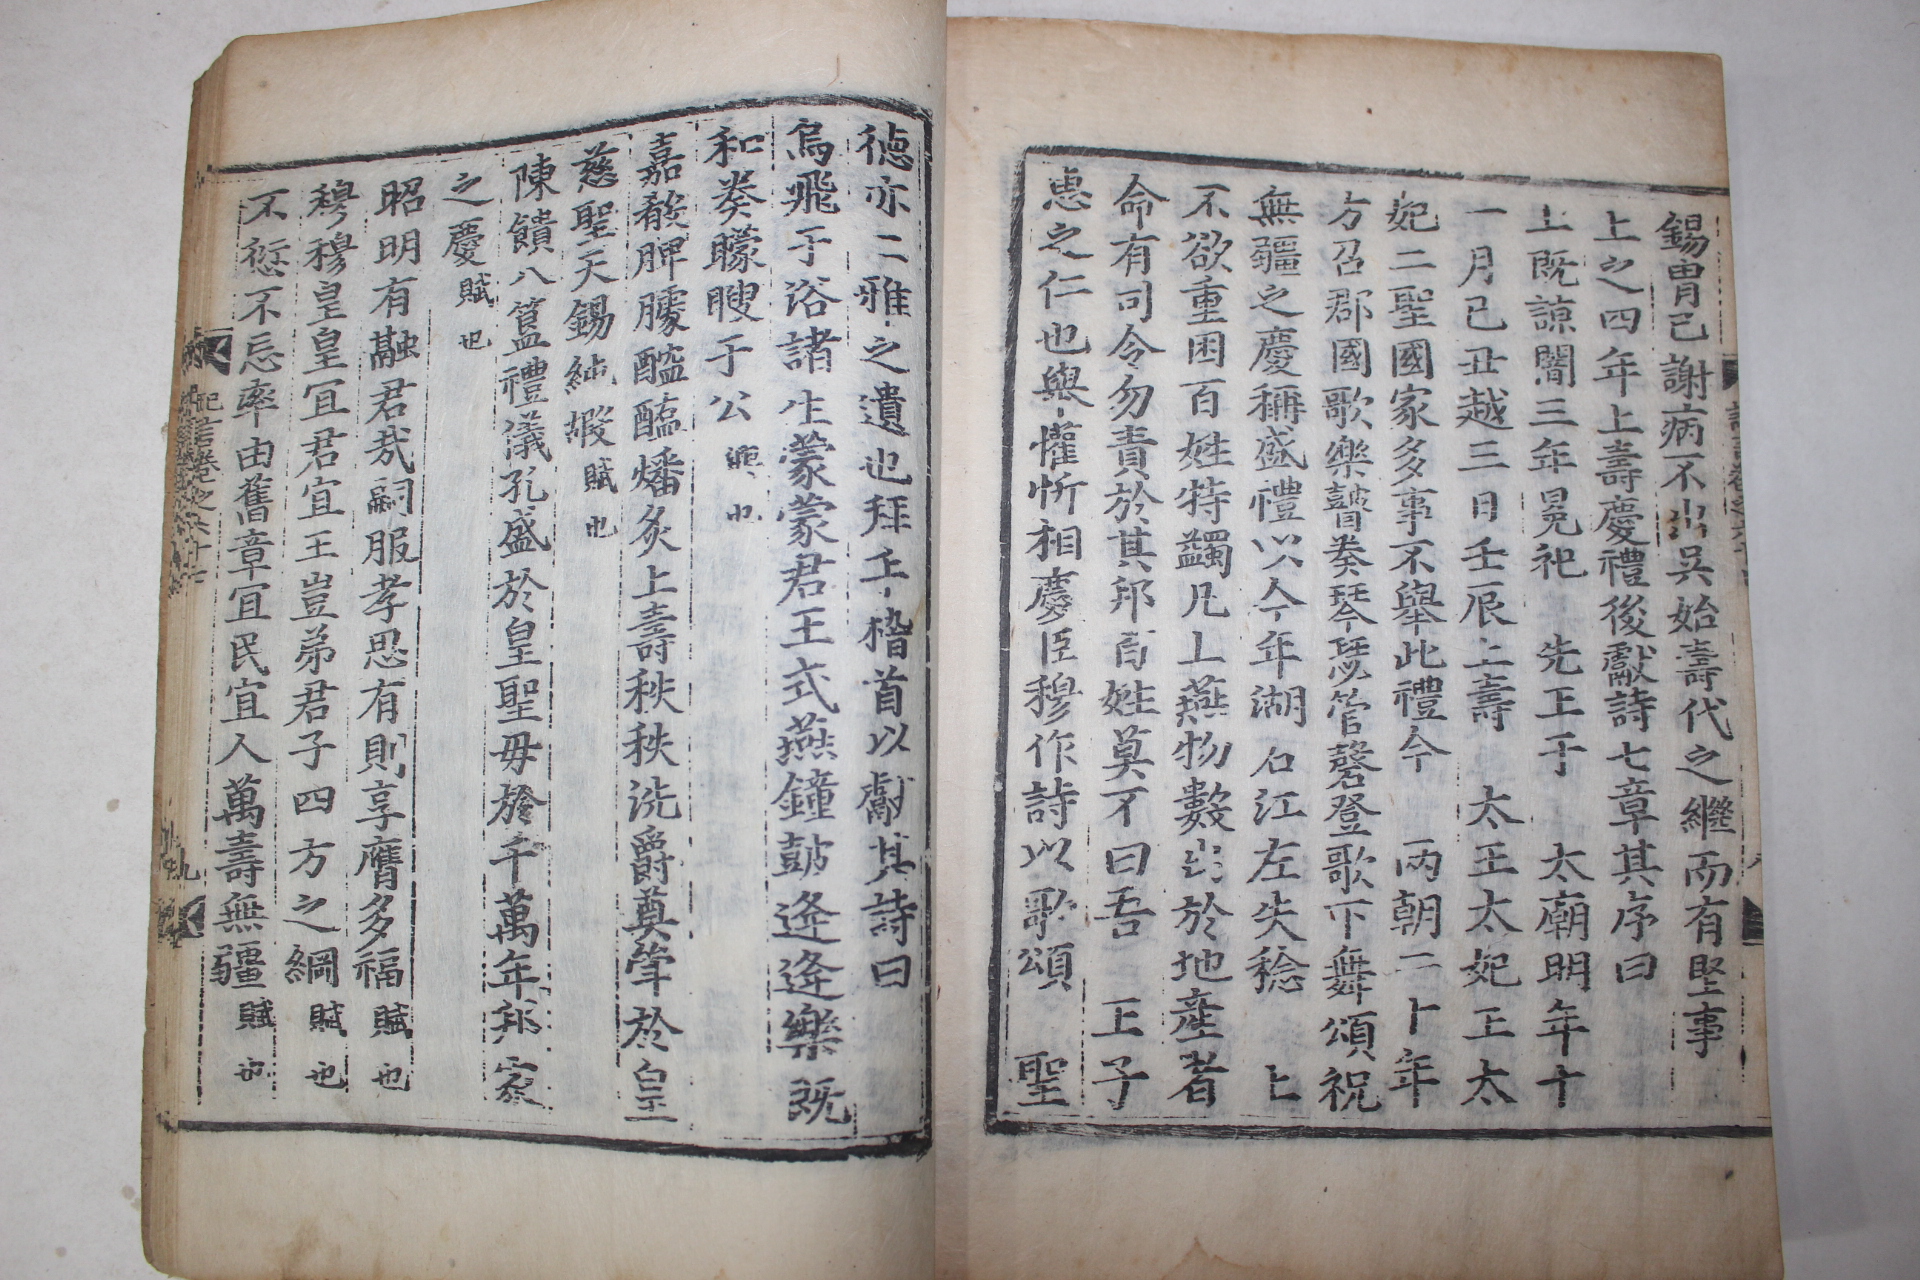 錫胄已謝病不出吳始壽代之繼而有堅事
上之四年上壽慶禮後獻詩七章其序曰
上旣諒闇三年冕祀 先王于 太廟明年十
一月己丑越三日壬辰上壽 太王太妃王太
妃二聖國家多事不擧此禮今 兩朝二十年
方召郡國歌樂瞽奏琴瑟管磬登歌下舞頌祝
無疆之慶稱盛禮以今年湖右江左失稔 上
不欲重困百姓特蠲凡上燕物數出於地産者
命有司令勿責於其邦百姓莫不曰吾 王子
惠之仁也與懽忻相慶臣穆作詩以歌頌 聖
德亦二雅之遺也拜手稽首以獻其詩曰
烏飛于谷諸生蒙蒙君王式燕鐘鼓逄逄樂旣
和奏矇瞍于公 也
嘉殽脾臄醓醢燔炙上壽秩秩洗爵奠斝於皇
慈聖天錫純嘏賦也
陳饋八簋禮儀孔盛於皇聖毋於千萬年邦家
之慶賦也
昭明有融君哉嗣服孝思有則享膺多福賦也
穆穆皇皇宜君宜王豈弟君子四方之綱賦也
不愆不忘率由舊章宜民宜人萬壽無疆賦也
記言卷之六十 九